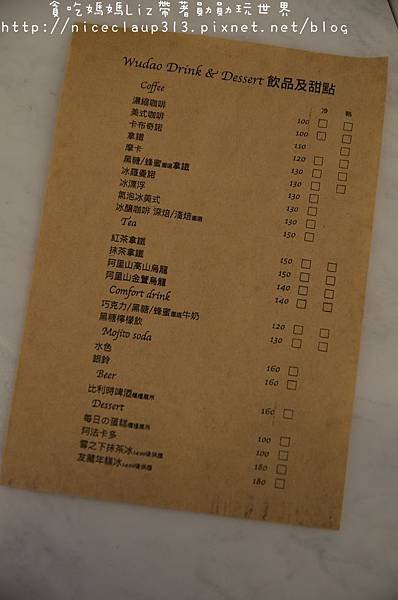 貪吃媽媽Liz帶著勛勛玩世界
http://niceclaup313.pixnet.net/blog
Wudao Drink & Dessert 飲品及甜點
Coffee 冷 熱
濃縮咖啡 100
美式咖啡 100
卡布奇諾 110
拿鐵 120
摩卡 130
黑糖/蜂蜜 拿鐵 130
冰羅曼諾 130
冰漂浮 130
氣泡冰美式 130
冰釀咖啡 深焙/淺焙 150
Tea
紅茶拿鐵 150
抹茶拿鐵 150
阿里山高山烏龍 140
阿里山金萱烏龍 140
Comfort drink
巧克力/黑糖/蜂蜜 牛奶 120
黑糖檸檬飲 130
Mojito soda
水色 160
銀鈴 160
Beer
比利時啤酒 160
Dessert
每日の蛋糕 100
阿法卡多 100
雪之下抹茶冰 180
友藏年糕冰 180